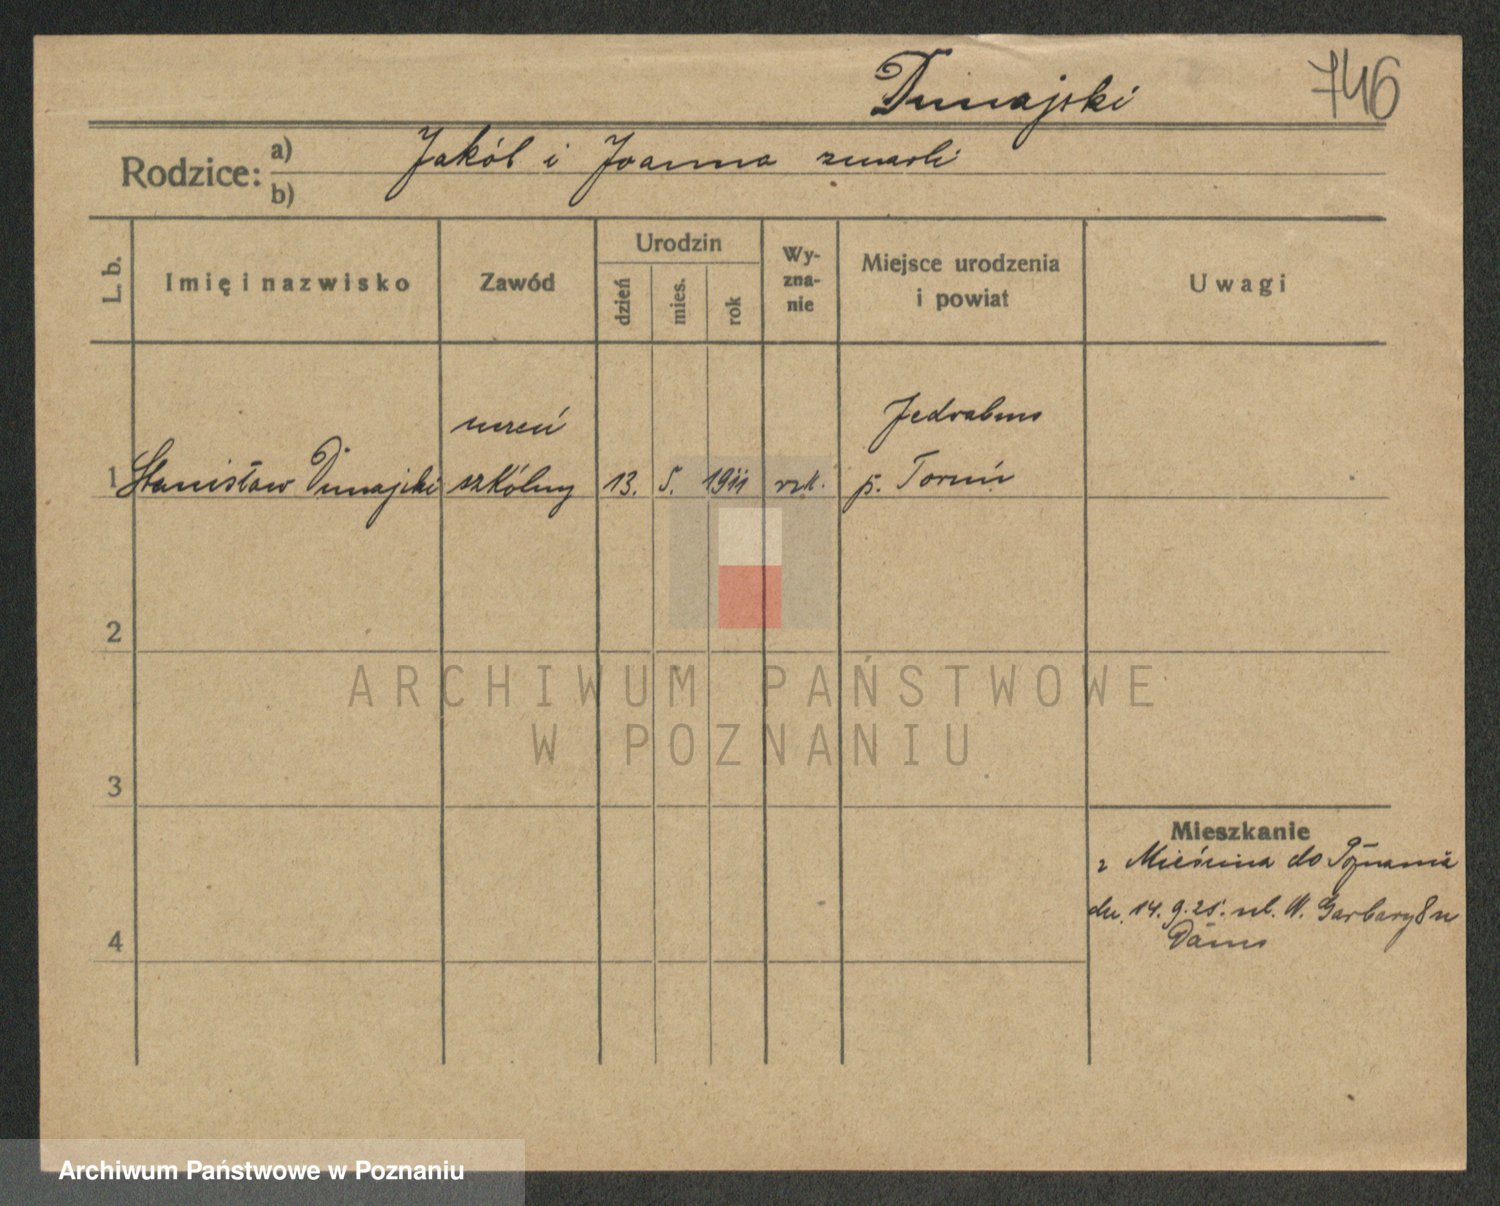 Dunajski 746
Rodzice: a) b) Jakób i Joanna zmarli
L. b. Imię i nazwisko Zawód Urodzin dzień mies. rok Wy-zna-nie Miejsce urodzenia i powiat Uwagi
uczeń Jedrabno
1 Stanisław Dunajski szkólny 13. 5. 1911 rzk. p. Toruń
2
ARCHIWUM PAŃSTWOWE
W POZNANIU
3
Mieszkanie
z do Poznania
dn. 14. 9. 25. ul. W. Garbary 8 u
4
Archiwum Państwowe w Poznaniu